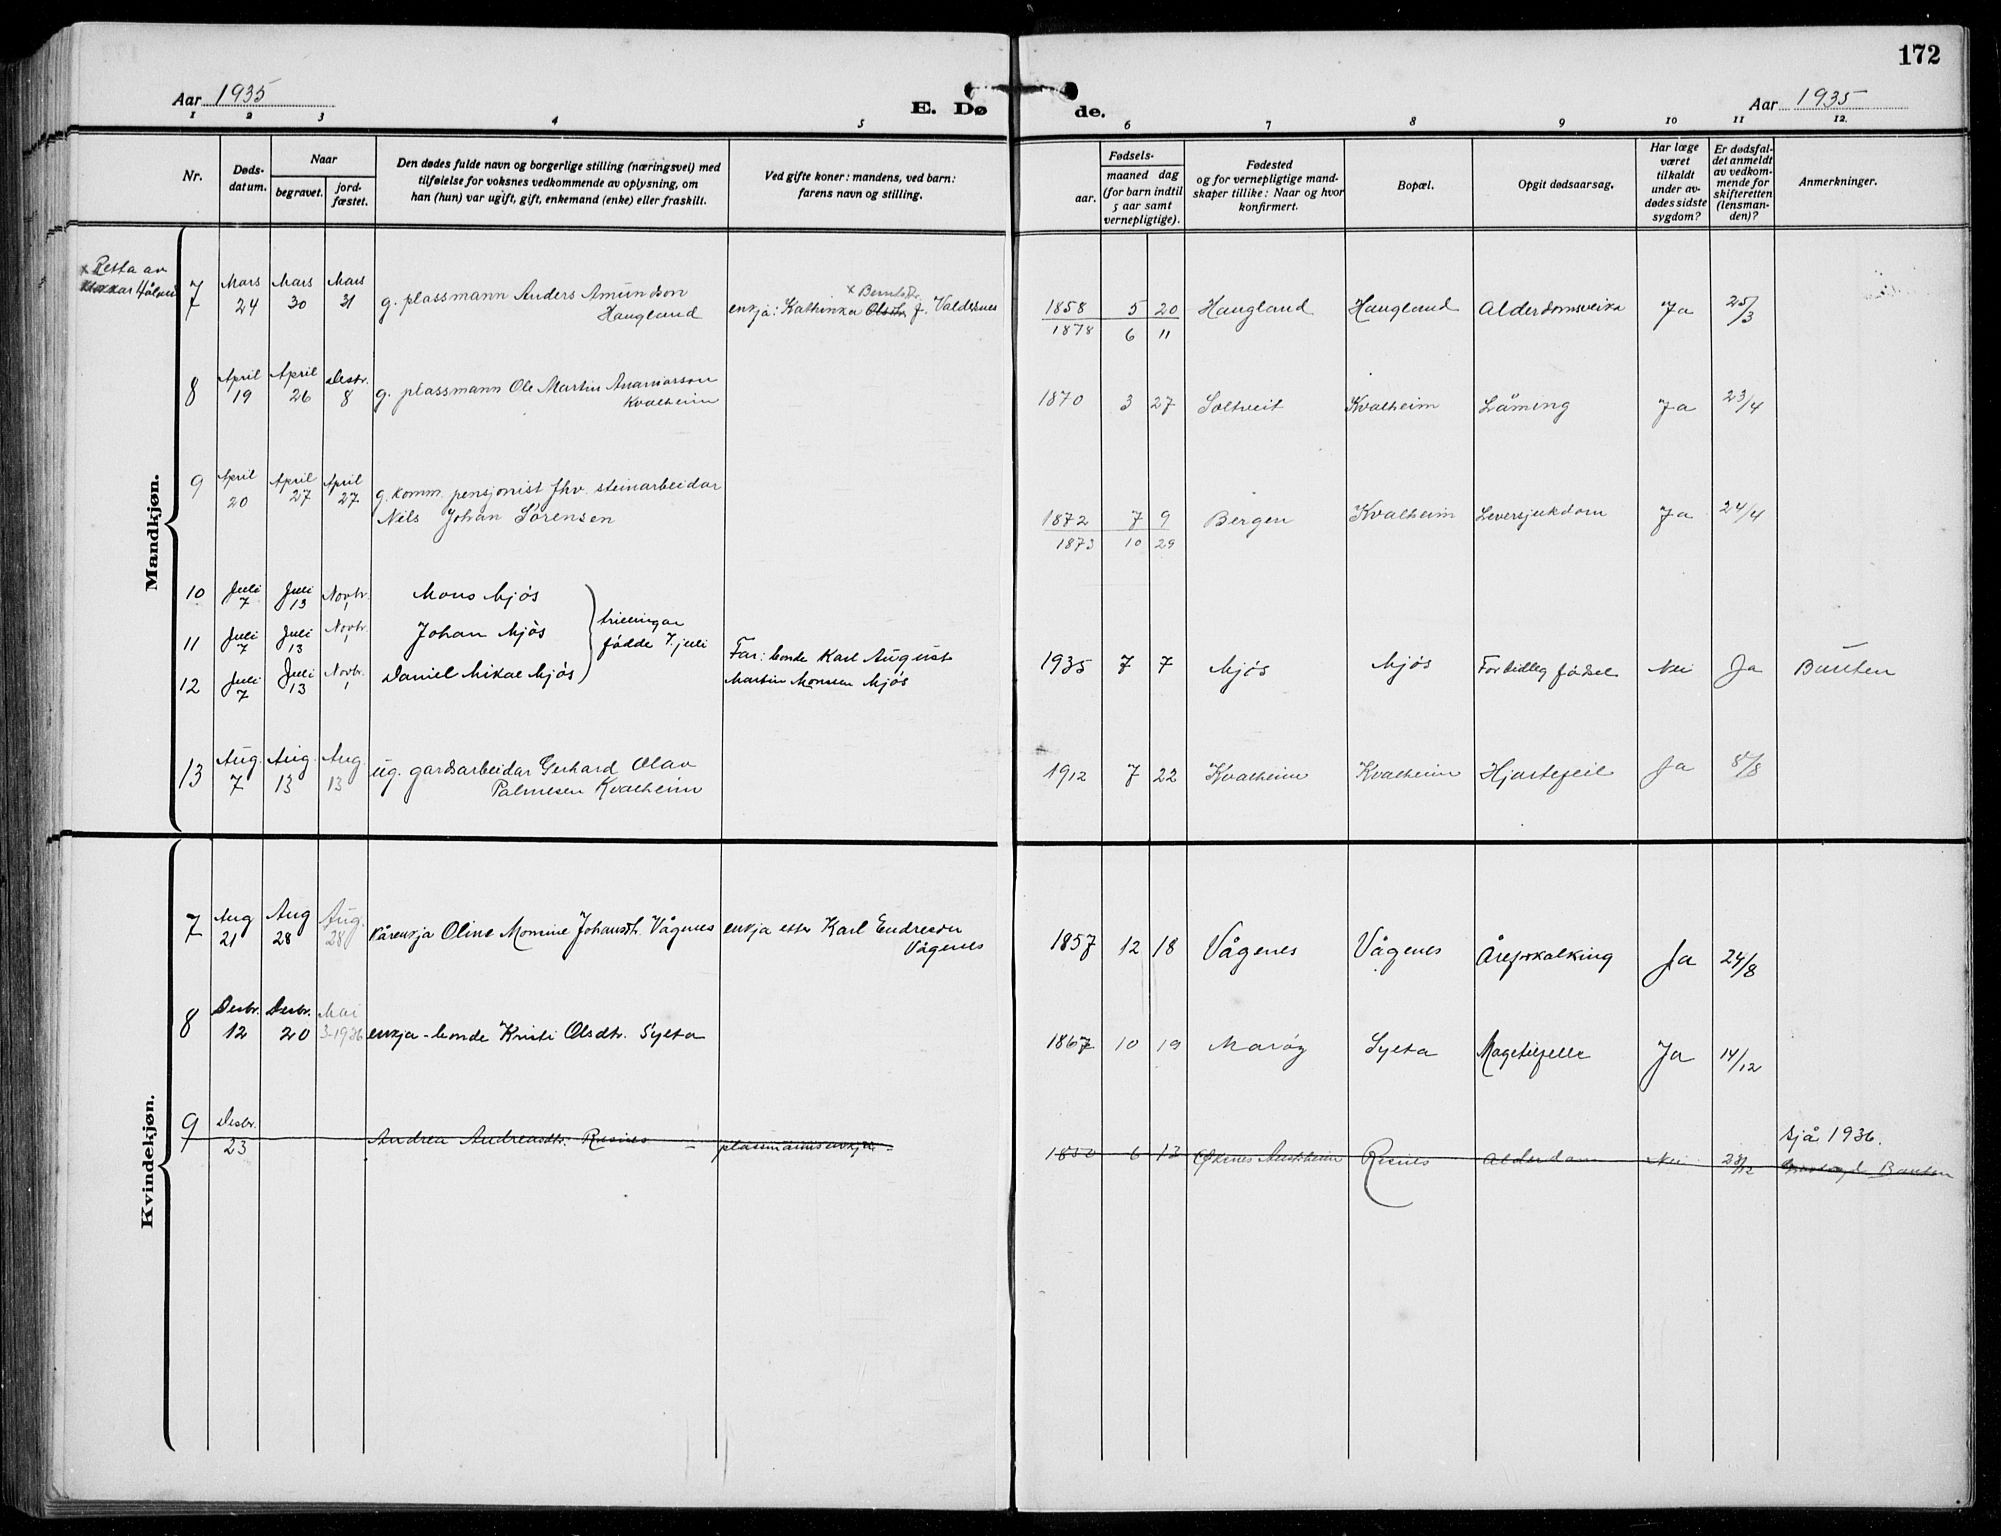 172
Aar 1935
E. Dø
de.
Aar 1935
1 2 3 4 5 6 7 8 9 10 11 12.
Nr.
Døds-
datum.
Naar
begravet.
jord-
fæstet.
Den dødes fulde navn og borgerlige stilling (næringsvei) med
tilføielse for voksnes vedkommende av oplysning, om
han (hun) var ugift, gift, enkemand (enke) eller fraskilt.
Ved gifte koner: mandens, ved barn:
farens navn og stilling.
Fødsels-
aar.
maaned dag
(for barn indtil
5 aar samt
vernepligtige).
Fødested
og for vernepligtige mand-
skaper tillike: Naar og hvor
konfirmert.
Bopæl.
Opgit dødsaarsag.
Har læge
været
tilkaldt
under av-
dødes sidste
sygdom?
Er dødsfal-
det anmeldt
av vedkom-
mende for
skifteretten
(lensman-
den)?
Anmerkninger.
Mandkjøn.
x Retta av
7 Mars 24 Mars 30 Mars 31 g. plassmann Anders Amundson
Haugland
x Berntsdtr.
enkja: Kathinka Olsdtr. f. Valdersnes
1858 5 20 Haugland Haugland Alderdomsveika Ja 25/3
1878 6 11
8 April 19 April 26 Desbr. 8 g. plassmann Ole Martin Ananiasson
Kvalheim
1870 3 27 Soltveit Kvalheim Låming Ja 23/4
9 April 20 April 27 April 27 g. komm. pensjonist fhv. steinarbeidar
Nils Johan Sørensen
1872 7 9 Bergen Kvalheim Leversjukdom Ja 24/4
1873 10 29
10 Juli 7 Juli 13 Novbr. 1 Mons Mjøs
11 Juli 7 Juli 13 Novbr. 1 Johan Mjøs
12 Juli 7 Juli 13 Novbr. 1 Daniel Mikal Mjøs
trillingar
fødde 7 juli
Far: bonde Karl August
Martin Monssen Mjøs
1935 7 7 Mjøs Mjøs For tidleg fødsel Nei Ja Bauten
13 Aug. 7 Aug. 13 Aug. 13 ug. gardsarbeidar Gerhard Olav
Palmesen Kvalheim
1912 7 22 Kvalheim Kvalheim Hjartefeil Ja 8/8
Kvindekjøn.
7 Aug 21 Aug 28 Aug. 28 kårenkja Oline Momine Johansdtr. Vågenes enkja etter Karl Endreson
Vågenes
1857 12 18 Vågenes Vågenes Åreforkalking Ja 24/8
8 Desbr. 12 Desbr. 20 Mai 3-1936 enkja-bonde Kristi Olsdtr. Sylta
1867 10 19 Marøy Sylta Magetilfelle Ja 14/12
9 Desbr. 23 Andrea Andreasdtr. Risnes – plassmannsenkja –
1850 6 13 Austrheim Risnes Alderdom Nei 28/12 sjå 1936.
Bauten